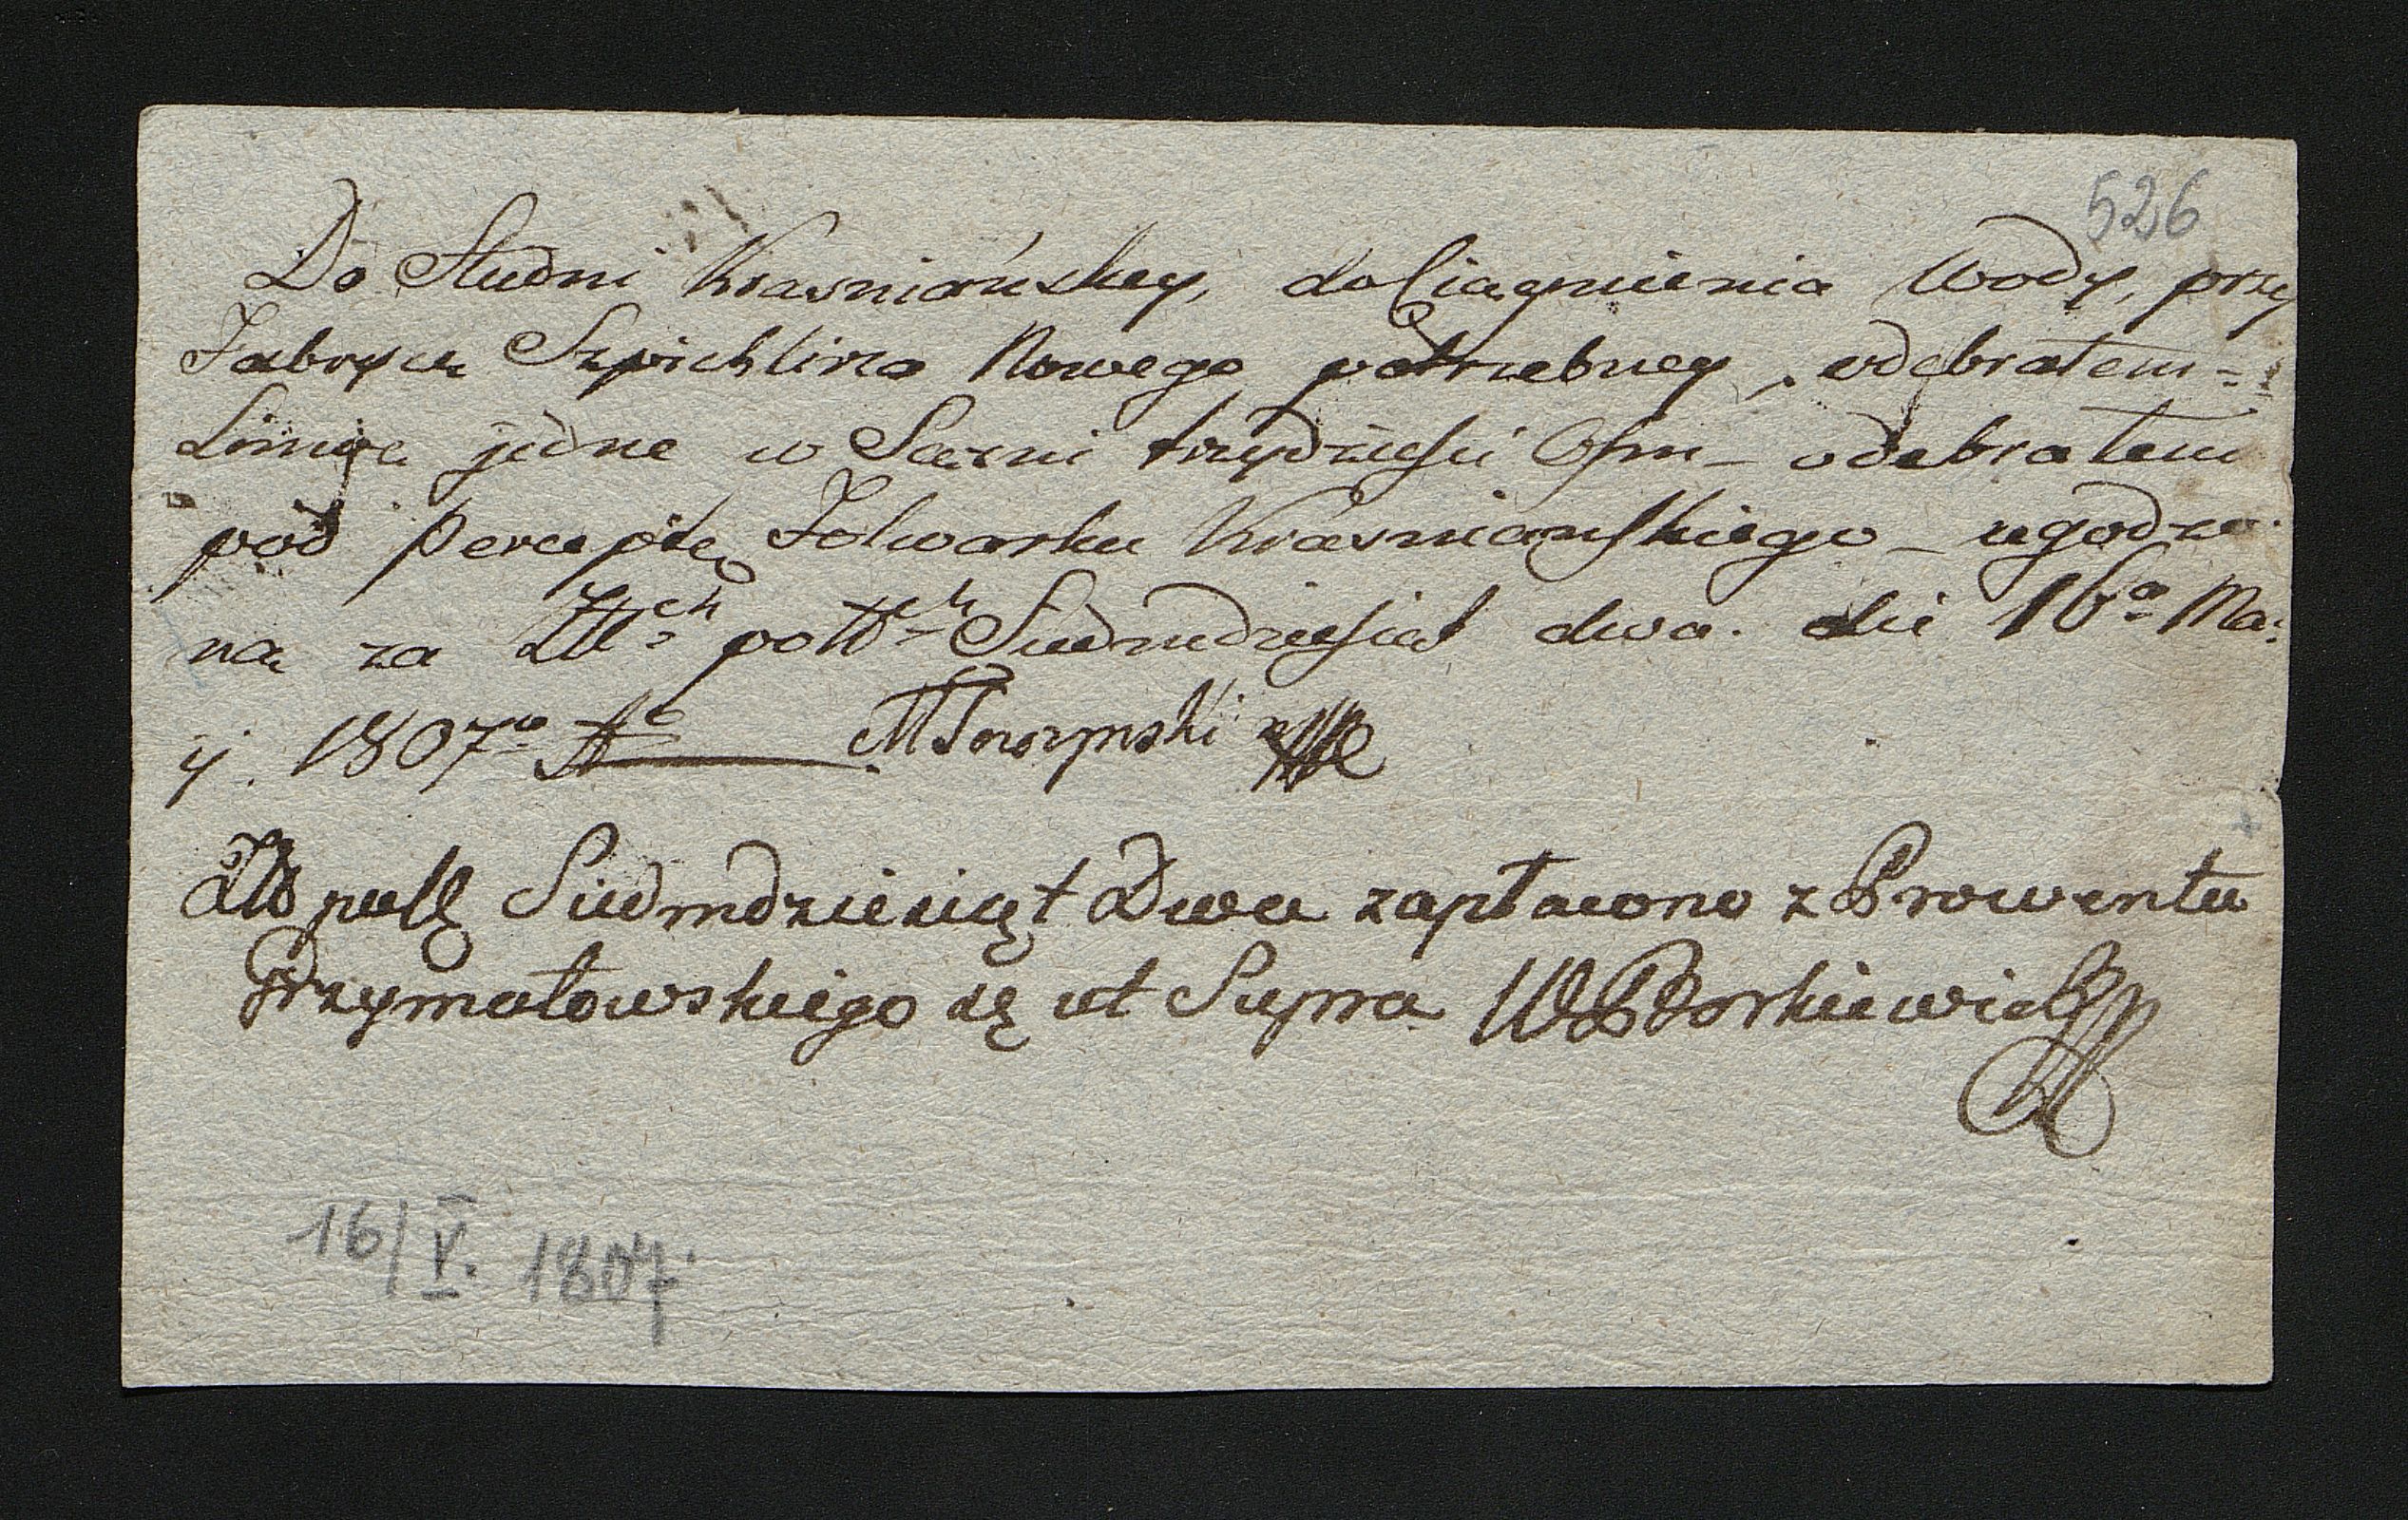 526
Do Studni Krasniańskey, do Ciągnienia Wody, przy
Fabryce Szpichlirza Nowego potrzebney, odebrałem=
Linwę jedne w Sążni trzydzieści Ośm _ odebrałem
pod perceptę Folwarku Kraśniańskiego _ ugodzo:
ną za Złtch polltch Siedmdziesiąt dwa. die 16a Ma:
ij. 1807o Ao M
Złt pulſ Siedmdziesiąt Dwa zapłacono z Prowentu
Przymałowskiego dę ut Supra W Borkiewicz
16/V. 1807.